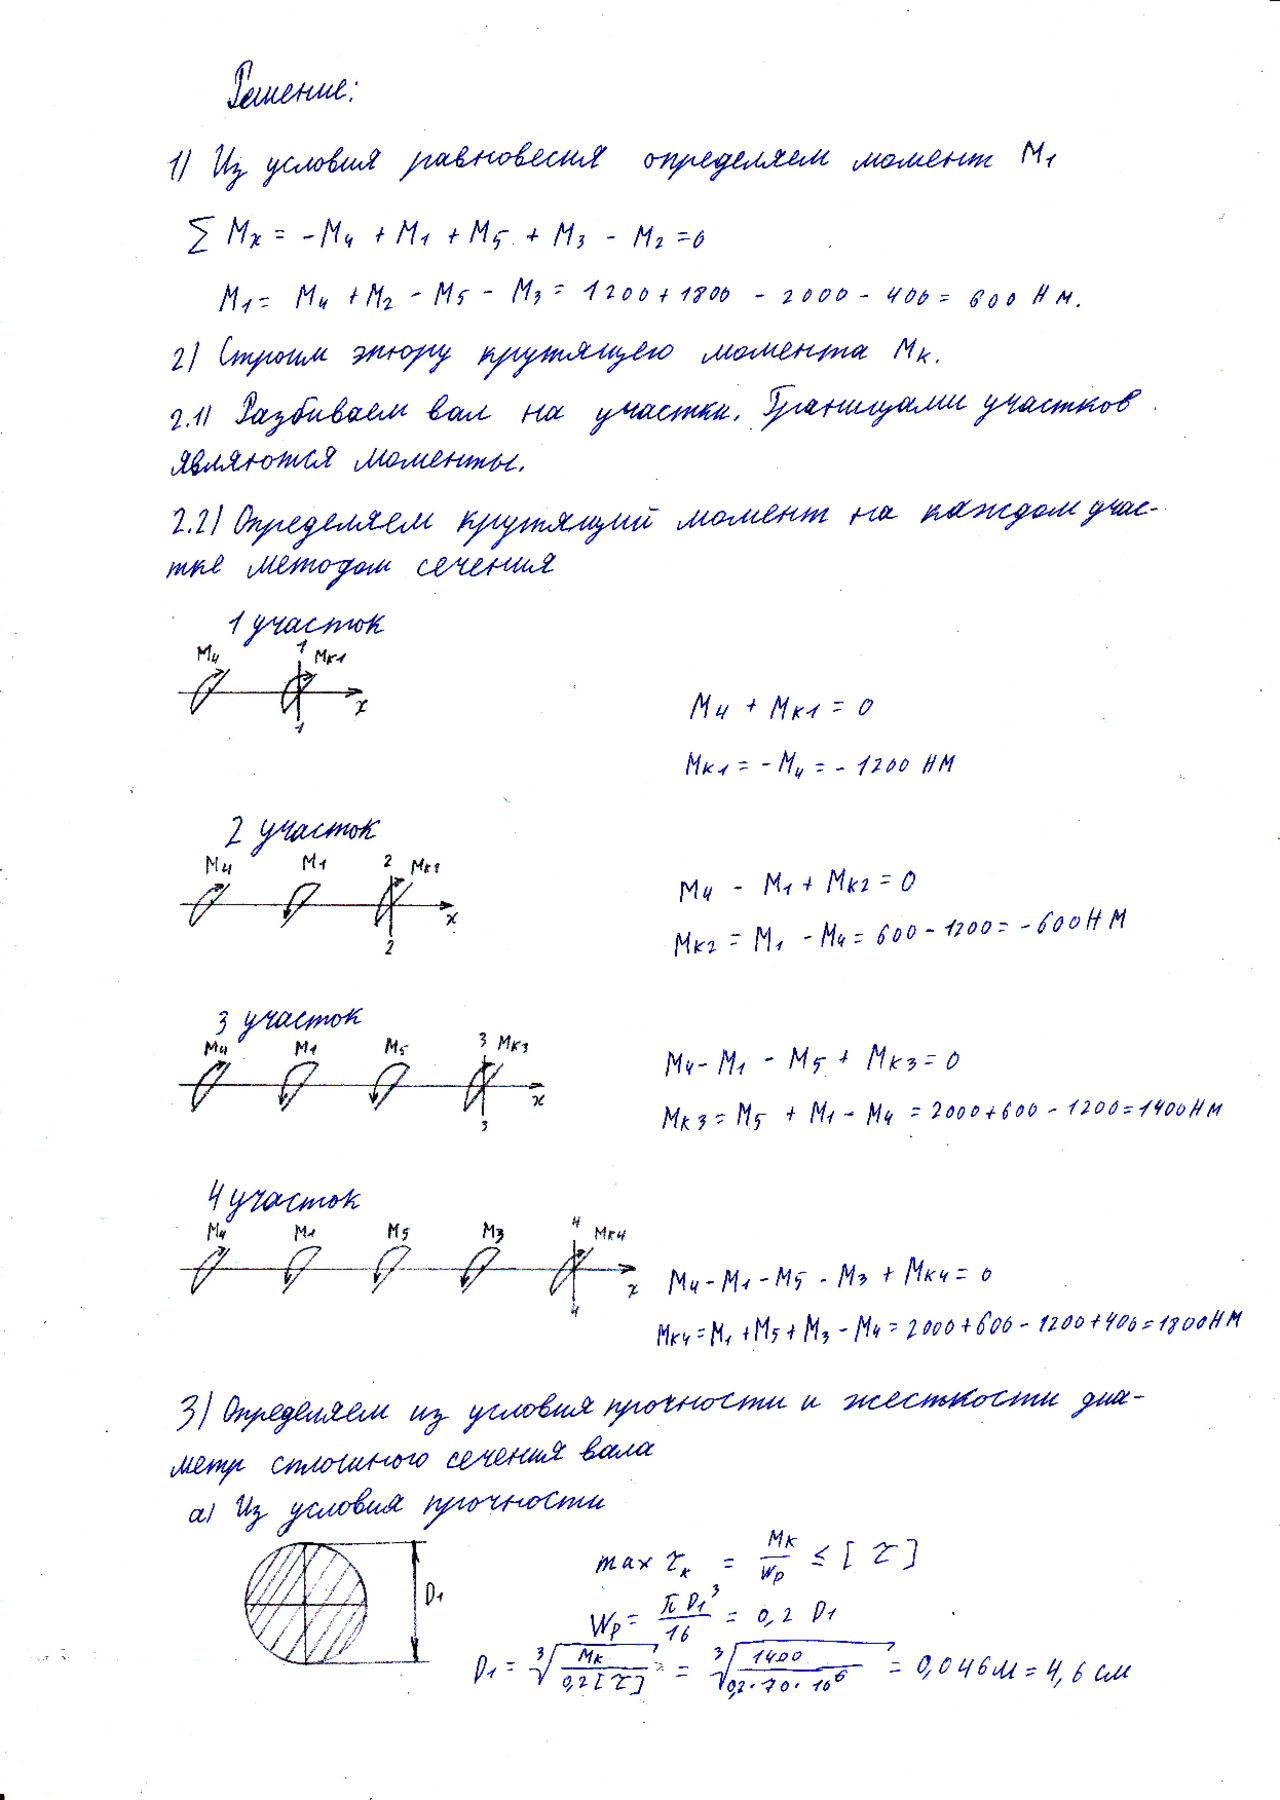 Решение:
1) Из условия равновесия определяем момент M1
∑ Mx = -M4 + M1 + M5 + M3 - M2 = 0
M1 = M4 + M2 - M5 - M3 = 1200 + 1800 - 2000 - 400 = 600 Нм.
2) Строим эпюру крутящего момента Mк.
2.1) Разбиваем вал на участки. Границами участков
являются моменты.
2.2) Определяем крутящий момент на каждом учас-
тке методом сечения
1 участок
M4 1 Mк1
x
1
M4 + Mк1 = 0
Mк1 = -M4 = -1200 НМ
2 участок
M4 M1 2 Mк2
x
2
M4 - M1 + Mк2 = 0
Mк2 = M1 - M4 = 600 - 1200 = -600 НМ
3 участок
M4 M1 M5 3 Mк3
x
3
M4 - M1 - M5 + Mк3 = 0
Mк3 = M5 + M1 - M4 = 2000 + 600 - 1200 = 1400 НМ
4 участок
M4 M1 M5 M3 4 Mк4
x
4
M4 - M1 - M5 - M3 + Mк4 = 0
Mк4 = M1 + M5 + M3 - M4 = 2000 + 600 - 1200 + 400 = 1800 НМ
3) Определяем из условия прочности и жесткости диа-
метр сплошного сечения вала
а) Из условия прочности
D1
max τк = Mк/Wp ≤ [τ]
Wp = πD1³/16 = 0,2 D1
D1 = ∛(Mк/0,2[τ]) = ∛(1400/0,2·70·10⁶) = 0,046 м = 4,6 см